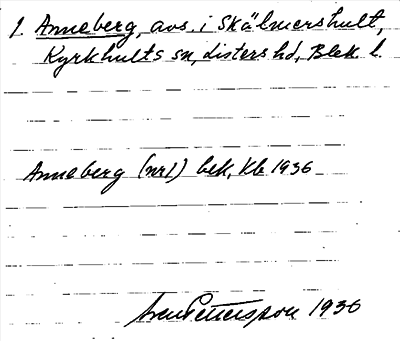 1. Anneberg, avs. i Skälmershult,
Kyrkhults sn, Listers hd, Blek. l.
Anneberg (nr1) bek, Kb 1936
Pettersson 1936